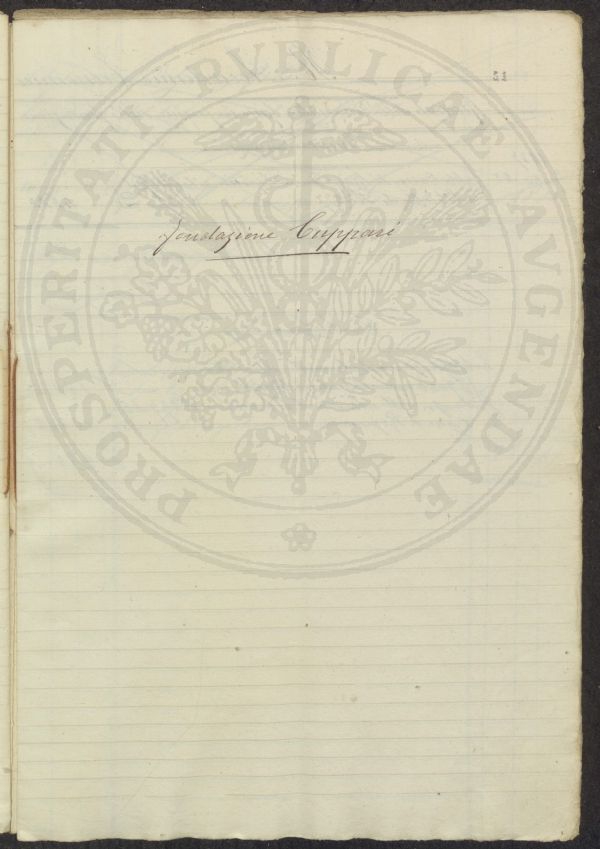 PROSPERITATI PVBLICAE AVGENDAE
51
fondazione Cuppari